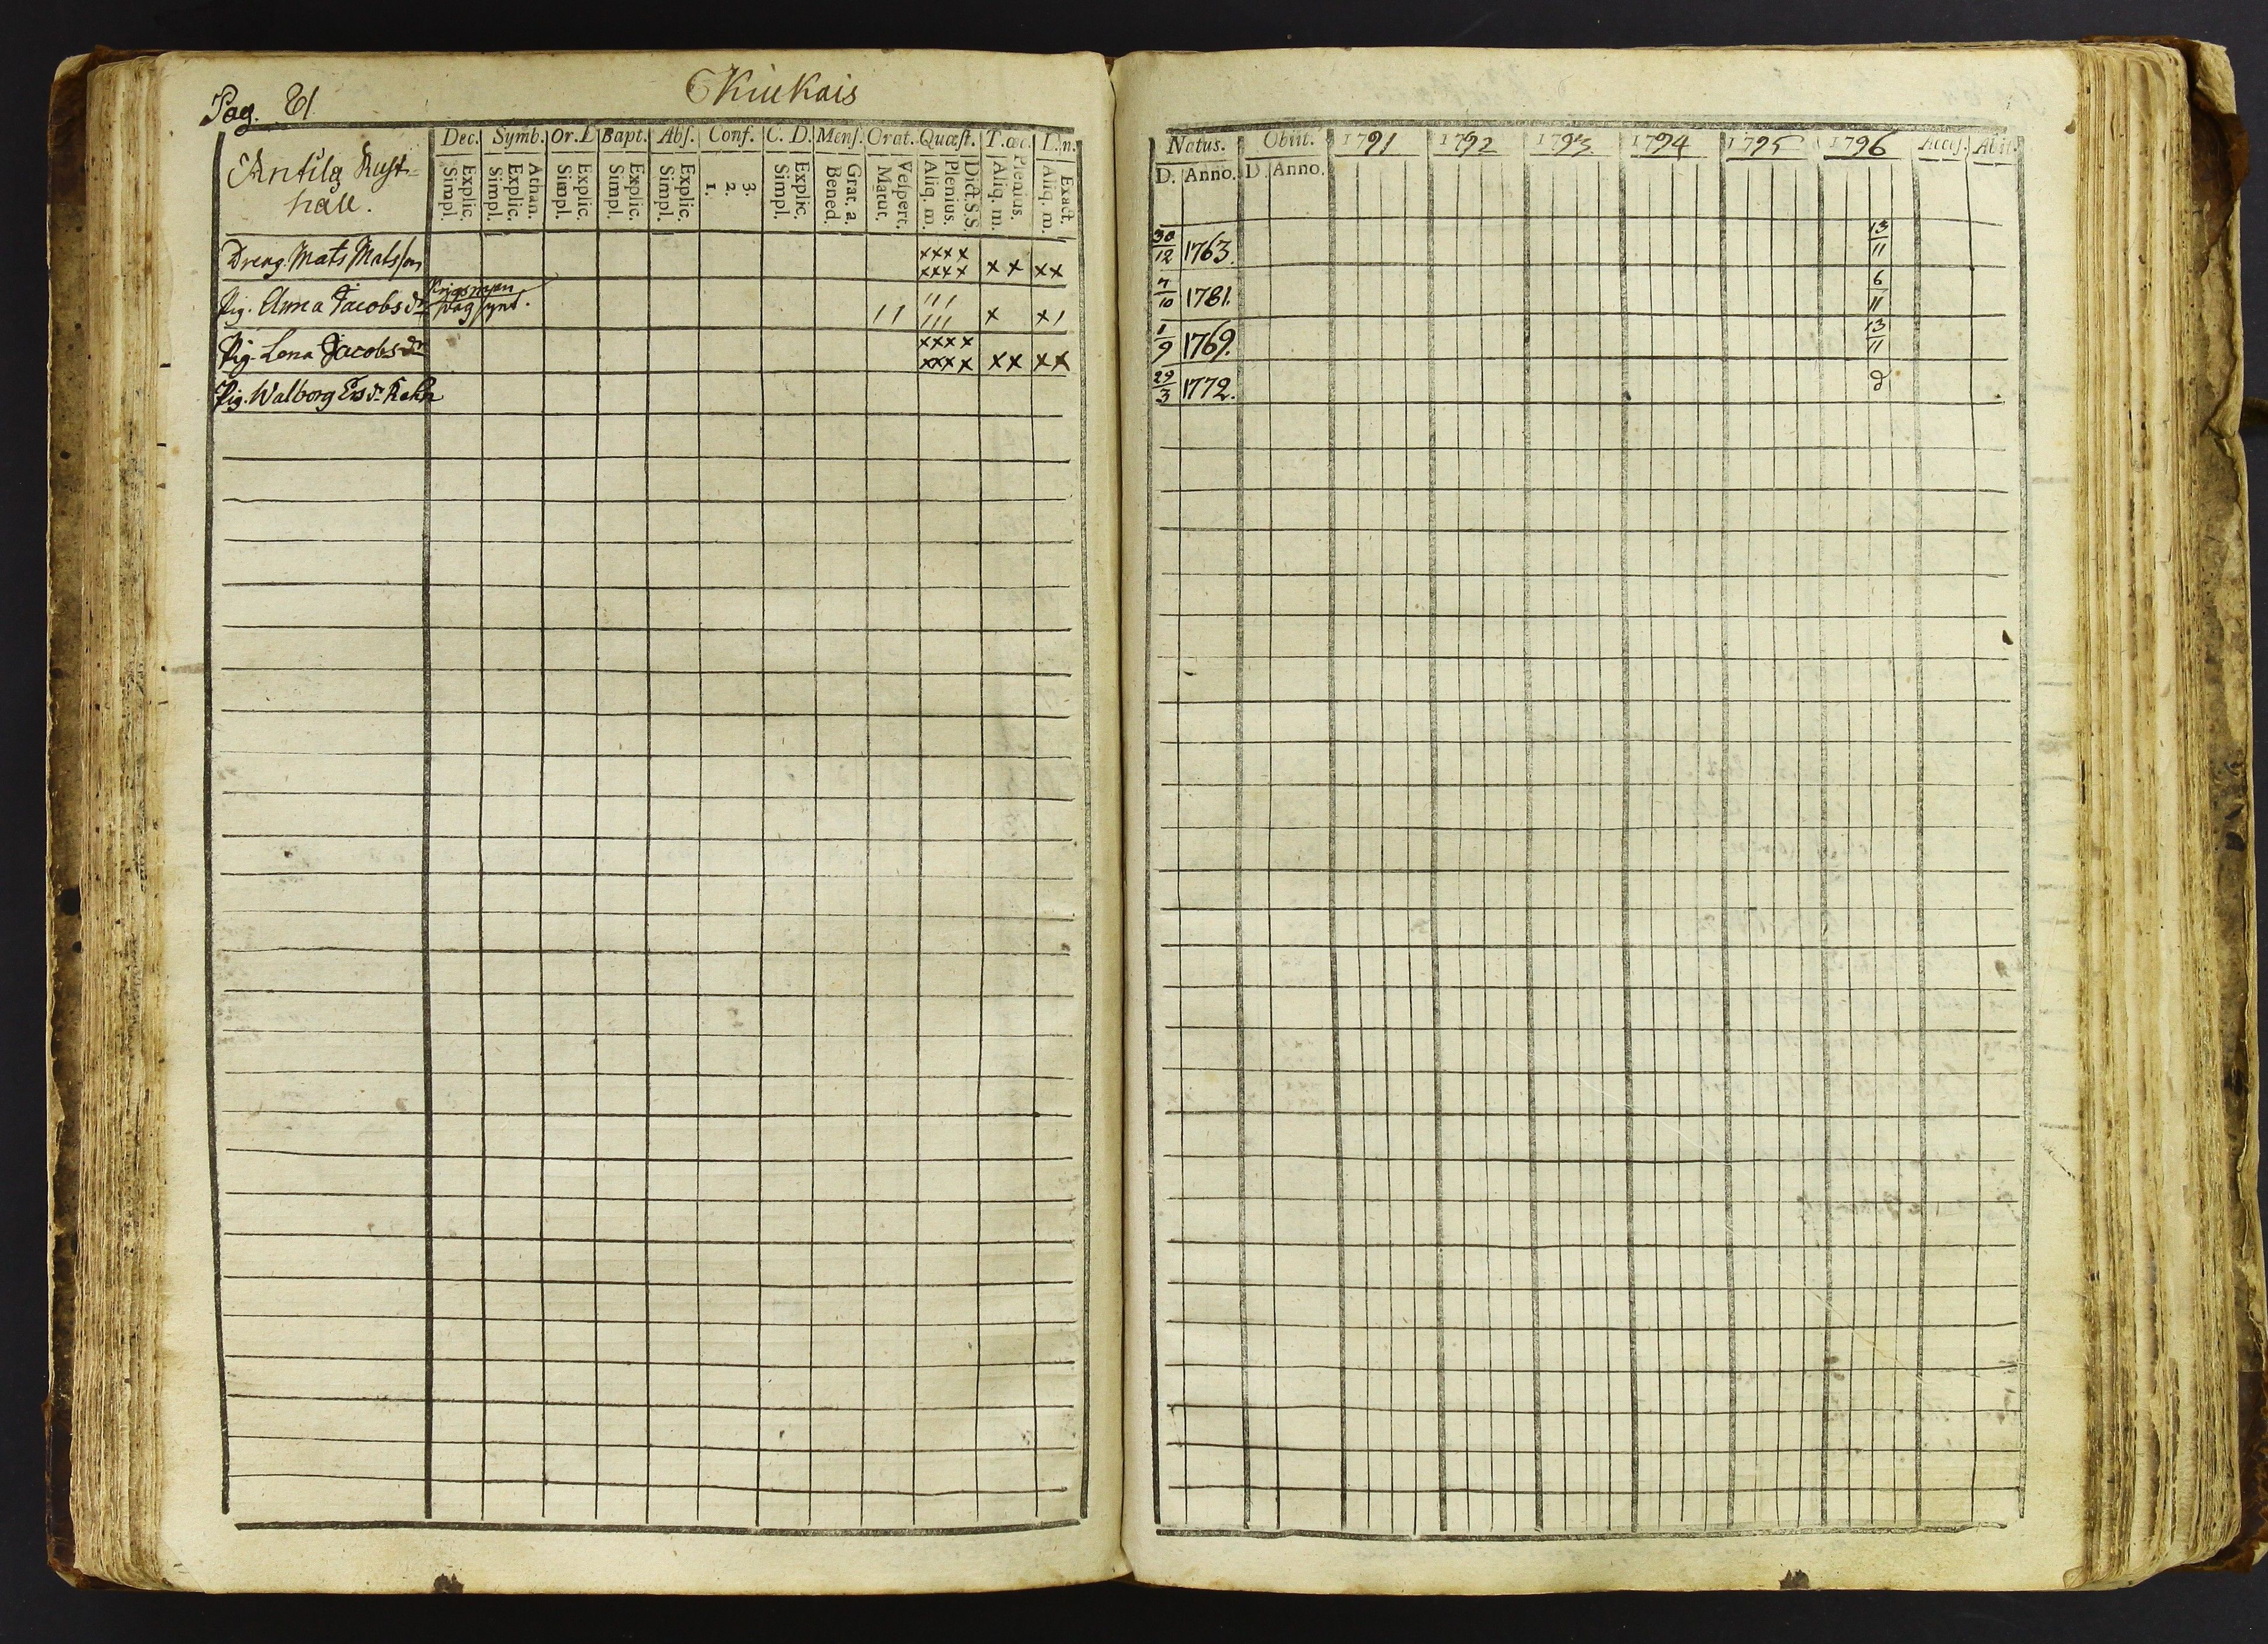 Pag. 81.
Kiukais
Antila Rust=
håll.
Dec. Symb. Or. D Bapt. Abs. Conf. C. D. Mens. Orat. Quæst. T. œc. L. n.
Explic. Simpl. Athan. Explic. Simpl. Explic. Simpl. Explic. Simpl. Explic. Simpl. 3. 2. 1. Explic. Simpl. Grat. a. Bened. Vespert. Matut. Dict. S. S. Plenius. Aliq. m. Plenius. Aliq. m. Exact. Aliq. m.
Natus. Obiit. 1791 1792 1793. 1794 1795 1796 Acces. Abit.
D. Anno. D. Anno.
Dreng. Mats Matsson xxxx xxxx xx xx 30/12 1763. 13/11
Pig. Anna Jacobs dr svag synt. 7/10 1781. 6/11
Pig. Lena Jacobs dr xxxx xxxx xx xx 1/9 1769. 13/11
Pig. Walborg Ers dr 29/3 1772. d